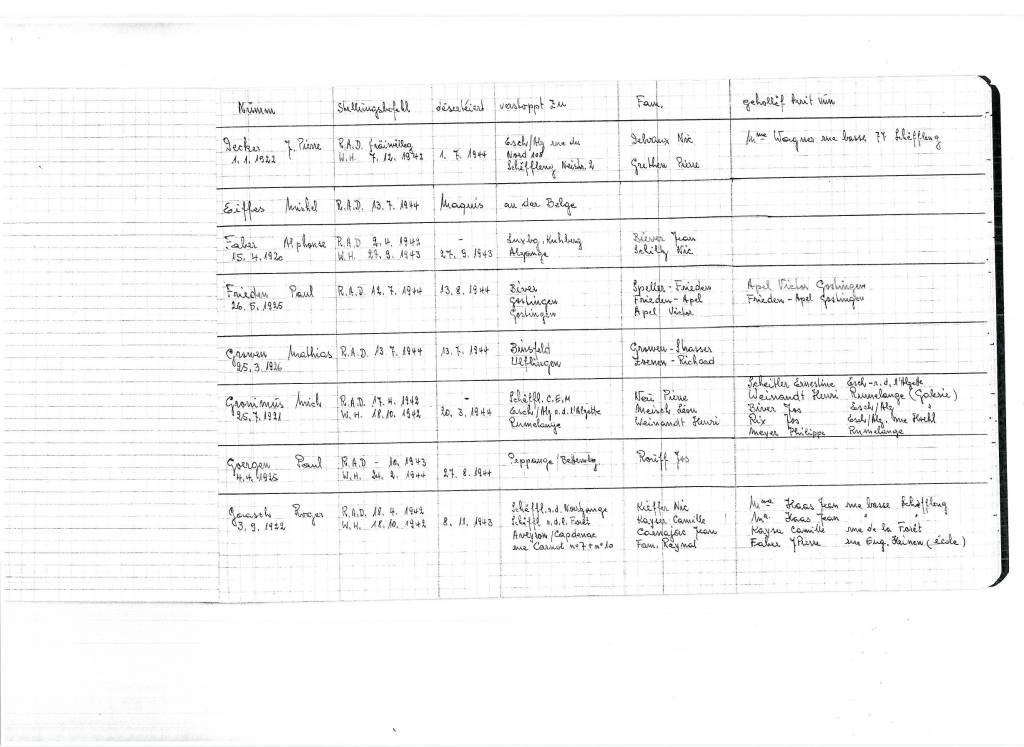 Numm Stellungsbefehl déserteiert verstoppt zu Fam. gehollëf huet vun
Decker J. Pierre R.A.D. fräiwëlleg Esch/Alz rue du Delvaux Nic Mme Wagner rue basse 77 Schëffleng
1.1.1922 W.H. 7.12.1942 1.7.1944 Nord 108
Schëffleng Neistr. 2 Grethen Pierre
Eiffes Michel R.A.D. 13.7.1944 Maquis an der Belge
Faber Alphonse R.A.D. 2.4.1942 - Luxbg. Kuhberg Biever Jean
15.4.1920 W.H. 27.9.1943 27.9.1943 Alzange Schiltz Nic
Frieden Paul R.A.D. 12.7.1944 13.8.1944 Biver Speller-Frieden Apel Victor Gostingen
26.5.1925 Gostingen Frieden-Apel Frieden-Apel Gostingen
Gostingen Apel Victor
Growen Mathias R.A.D. 13.7.1944 13.7.1944 Binsfeld Growen-Strasser
25.3.1926 Ulflingen Zeenen-Richard
Scheitler Ernestine Esch-r.d. l'Alzette
Gronimus Mich R.A.D. 17.4.1942 - Schëffl. C.E.M Neü Pierre Weinandt Henri Rumelange (Galerie)
25.7.1921 W.H. 18.10.1942 20.3.1944 Esch/Alz r.d. l'Alzette Meisch Léon Biver Jos Esch/Alz "
Rumelange Weinandt Henri Rix Jos Esch/Alz. rue Hoehl
Meyer Philippe Rumelange
Goergen Paul R.A.D. - 10.1943 Peppange/Bettembg Rouff Jos
4.4.1925 W.H. 24.2.1944 27.8.1944
Gaasch Roger R.A.D. 18.4.1942 Schëffl. r.d. Noertzange Kieffer Nic Mme Haas Jean rue basse Schëffleng
3.9.1922 W.H. 18.10.1942 8.11.1943 Schëffl r.d.l. Forêt Kayser Camille Mr. Haas Jean "
Aveyron/Capdenac Carnajac Jean Kayser Camille rue de la Forêt
rue Carnot n°7+n°10 Fam. Reynal Faber JPierre rue Eug. Heinen (école)